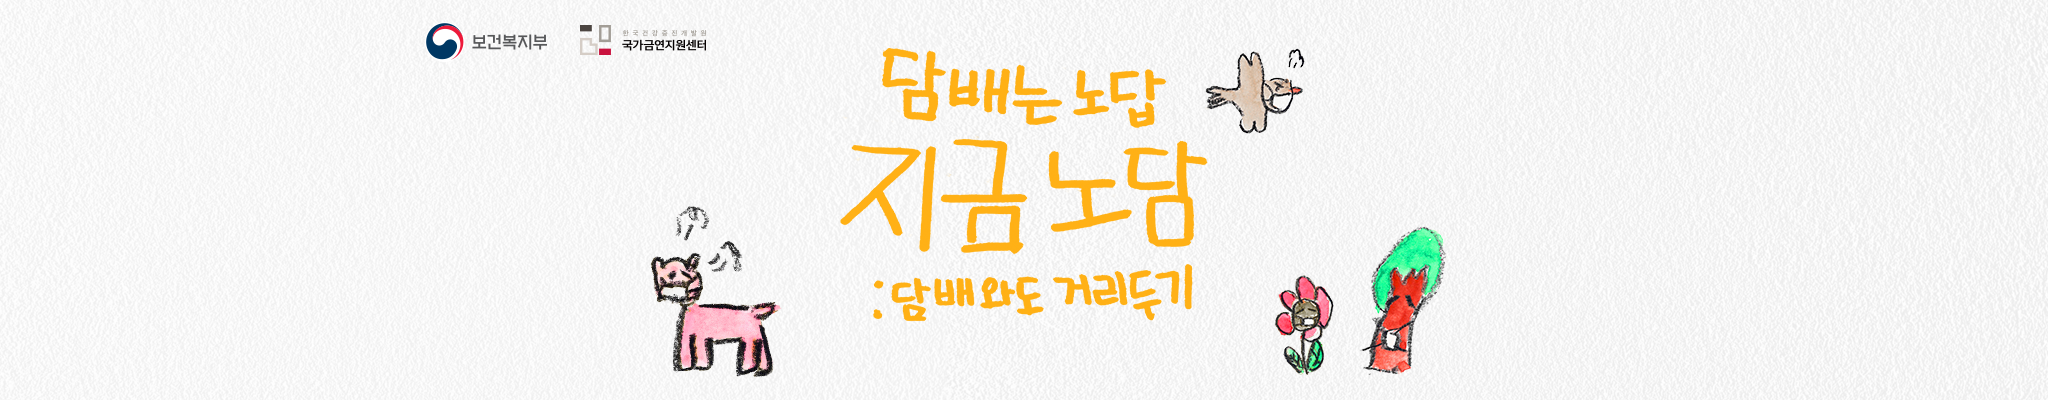 보건복지부
한국건강증진개발원
국가금연지원센터
담배는 노답
지금 노담
:담배와도 거리두기